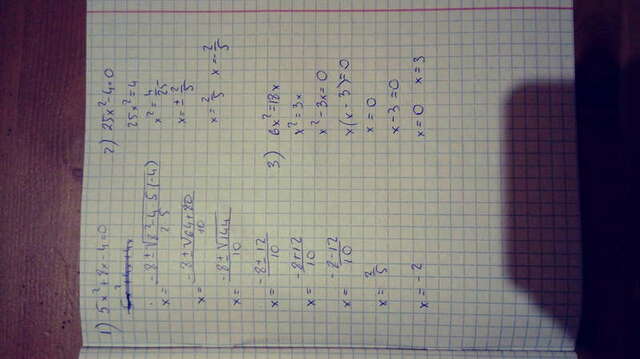 1) 5x² + 8x - 4 = 0
x = (-8 ± √(8² - 4 · 5 · (-4))) / (2 · 5)
x = (-8 ± √(64 + 80)) / 10
x = (-8 ± √144) / 10
x = (-8 ± 12) / 10
x = (-8 + 12) / 10
x = (-8 - 12) / 10
x = 2/5
x = -2
2) 25x² - 4 = 0
25x² = 4
x² = 4/25
x = ± 2/5
x = 2/5 x = -2/5
3) 6x² = 18x
x² = 3x
x² - 3x = 0
x(x - 3) = 0
x = 0
x - 3 = 0
x = 0 x = 3